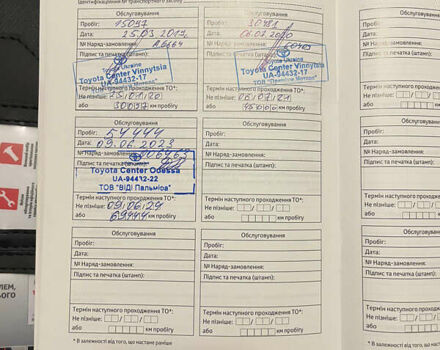 Ідентифікаційний № транспортного засобу
Обслуговування
Пробіг: 15097
Дата: 25.03.2019
№ Наряд-замовлення: A6664
Підпис та печатка (штамп):
Toyota Ukraine
Toyota Center Vinnytsia
UA-94432-17
Термін наступного проходження ТО*:
Не пізніше:
або 30097 км пробігу
Обслуговування
Пробіг: 30981
Дата: 06.07.2020
№ Наряд-замовлення:
Підпис та печатка (штамп):
Toyota Ukraine
Toyota Center Vinnytsia
UA-94432-17
ТОВ "Преміум Моторс"
Термін наступного проходження ТО*:
Не пізніше: 06.07.21
або 45000 км пробігу
Обслуговування
Пробіг: 54444
Дата: 09.06.2023
№ Наряд-замовлення:
Підпис та печатка
Toyota Center Odessa
UA-94412-22
ТОВ "ВІДІ Пальміра"
Не пізніше: 09.06.24
або 69444 км пробігу
Обслуговування
Пробіг:
Дата:
№ Наряд-замовлення:
Підпис та печатка (штамп):
Термін наступного проходження ТО*:
Не пізніше:
або км пробігу
Обслуговування
Пробіг:
Дата:
№ Наряд-замовлення:
Підпис та печатка (штамп):
Термін наступного проходження ТО*:
Не пізніше:
або км пробігу
Обслуговування
Пробіг:
Дата:
№ Наряд-замовлення:
Підпис та печатка (штамп):
Термін наступного проходження ТО*:
Не пізніше:
або км пробігу
* В залежності від того, що настане раніше
Пробіг:
Дата:
№ Наряд-
Підпис та
Термін на
Не пізніше
або
Пробіг:
Дата:
№ Наряд-
Підпис та
Термін на
Не пізніше
або
Пробіг:
Дата:
№ Наряд-
Підпис та
Термін на
Не пізніше
або
* В залежн